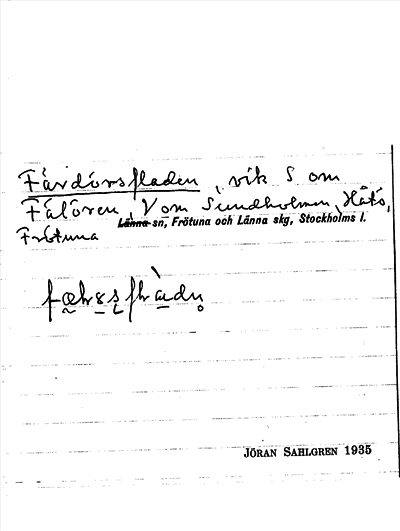 Färdörsfladen, vik S om
Fälören, V om Sundholmen, Håtö,
Länna sn, Frötuna och Länna skg, Stockholms l.
Frötuna
JÖRAN SAHLGREN 1935